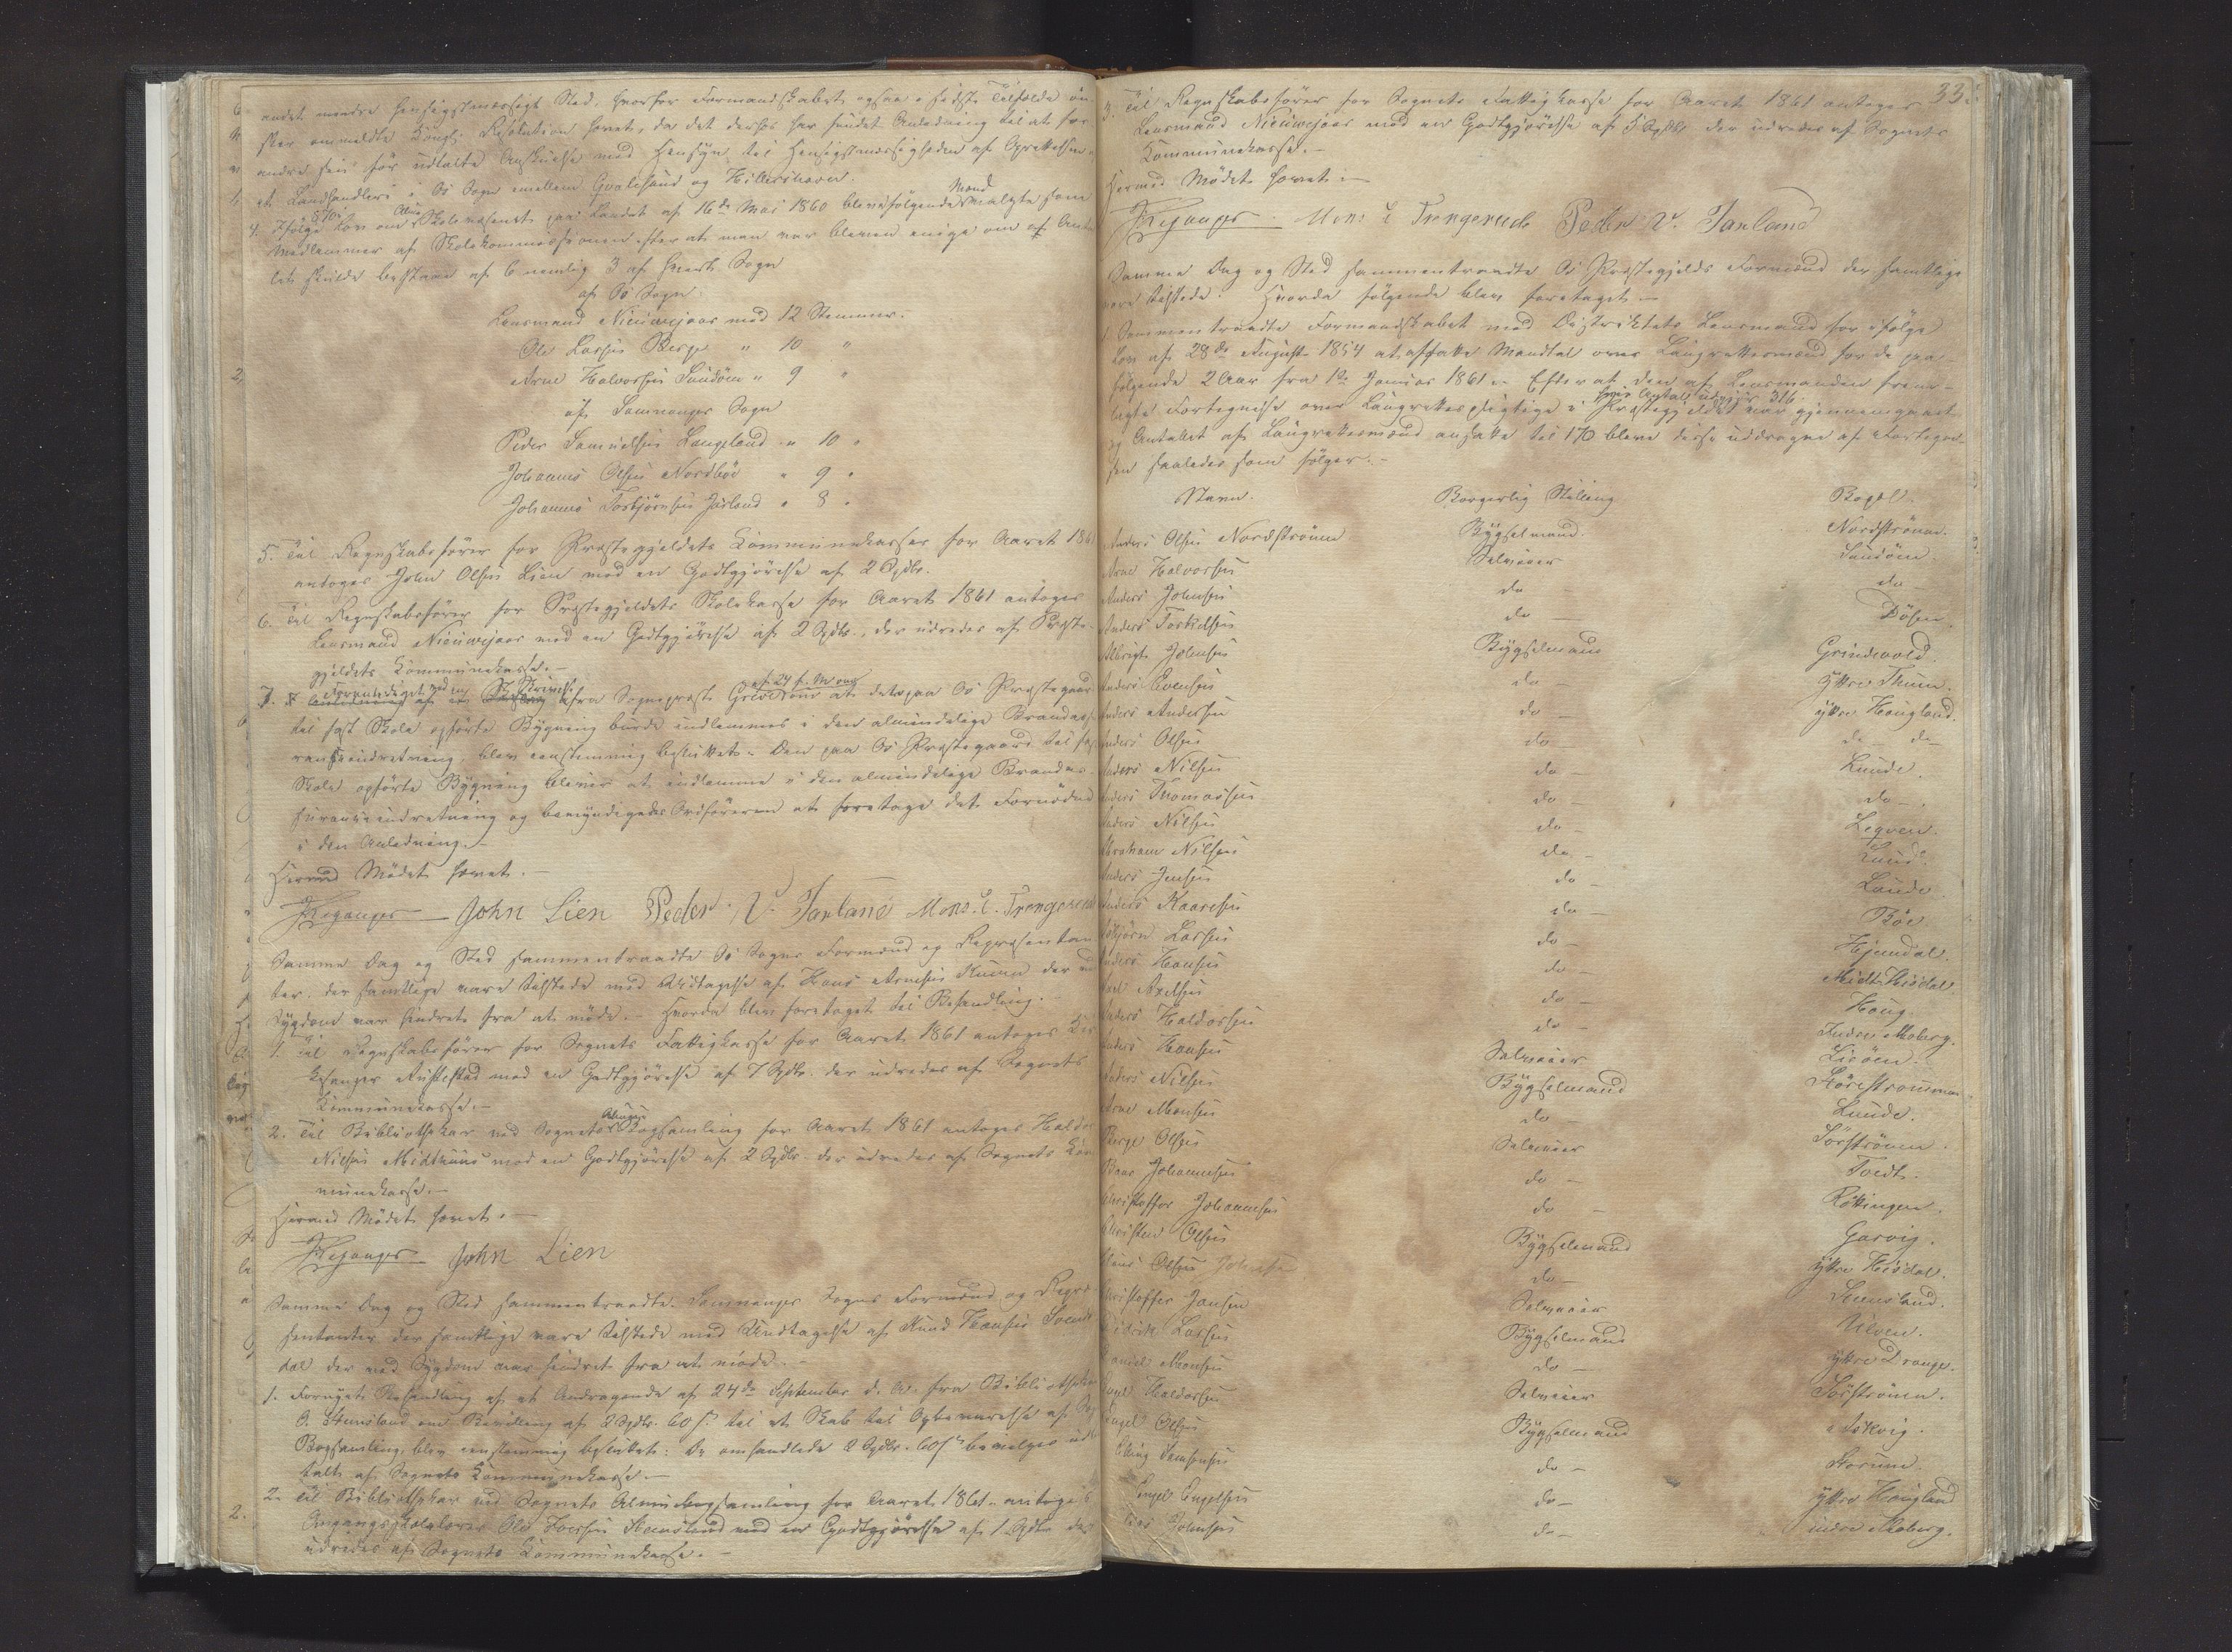 andet mindre hensigtsmæssigt Sted, hvorfor Formandskabet ogsaa i sidste Tilfælde øn-
sker ommeldte Kongl. Resolution hævet, da det derfor har fundet Anledning til at for-
andre sin før udtalte Anskuelse med Hensyn til Hensigtsmæssigheden af Oprettelsen
et Landhandleri i Os Sogn imellem Godøsund og
4. Ifølge Lov om Almueskolevæsenet paa Landet af 16de Mai 1860 bleve følgende Mænd valgte som
Medlemmer af Skolekommissionen efter at man var bleven enige om at Antal-
let skulde bestaae af 6 nemlig 3 af hvert Sogn
af Os Sogn:
Lensmand Nieuwejaar med 12 Stemmer.
Ole Larsen Berge " 10 "
Arne Halvorsen Sundøen " 9 "
af Samnanger Sogn
Peder Samuelsen Langeland " 10 "
Johannes Olsen Nordbøe " 9 "
Johannes Torbjørnsen Jarland " 8 "
5. Til Regnskabsfører for Præstegjeldets Kommunekasse for Aaret 1861
antoges John Olsen Lien med en Godtgjørelse af 2 Spdlr.
6. Til Regnskabsfører for Præstegjeldets Skolekasse for Aaret 1861 antoges
Lensmand Nieuwejaar med en Godtgjørelse af 2 Spdlr., der udredes af Præste-
gjeldets Kommunekasse.—
7. Foranlediget ved en Skrivelse fra Sognepræst af 24 f. M. om at det paa Os Præstegaard
til fast Skole opførte Bygning burde indlemmes i den almindelige Brandas-
ranceindretning, blev eenstemmig besluttet: Den paa Os Præstegaard til fast
Skole opførte Bygning bliver at indlemme i den almindelige Brandas-
suranceindretning og bemyndigedes Ordføreren at foretage det Fornødne
i den Anledning.—
Hermed Mødet hævet.—
John Lien Peder V. Jarland Mons. E. Trengereid
Samme Dag og Sted sammentraadte Os Sogns Formænd og Repræsentan-
ter, der samtlige vare tilstede med Undtagelse af Hans Arnesen der ved
Sygdom var hindret fra at møde.— Hvorda blev foretaget til Behandling.—
1. Til Regnskabsfører for Sognets Fattigkasse for Aaret 1861 antoges Kir-
kesanger med en Godtgjørelse af 7 Spdlr. der udredes af Sognets
Kommunekasse.—
2. Til Bibliothekar ved Sognets Almue Bogsamling for Aaret 1861 antoges Haldor
Nielsen Midthuus med en Godtgjørelse af 2 Spdlr. der udredes af Sognets Kom-
munekasse.—
Hermed Mødet hævet.—
John Lien
Samme Dag og Sted sammentraadte Samnanger Sogns Formænd og Repræ-
sentanter der samtlige vare tilstede med Undtagelse af Knud Hansen
dal der ved Sygdom var hindret fra at møde.—
1. Fornyet Behandling af et Andragende af 24de September d. A. fra Bibliothekar
O. Steinsland om Bevilling af 2 Spdlr. 60 s. til et Skab til Opbevarelse af
Bogsamling, blev eenstemmig besluttet: De omhandlede 2 Spdlr. 60 s. bevilges ud-
talt af Sognets Kommunekasse.—
2. Til Bibliothekar ved Sognets Almuebogsamling for Aaret 1861 antoges
Omgangsskolelærer Ole Steinsland med en Godtgjørelse af 1 Spdlr. der
udredes af Sognets Kommunekasse.—
33.
3. Til Regnskabsfører for Sognets Fattigkasse for Aaret 1861 antoges
Lensmand Nieuwejaar med en Godtgjørelse af 5 Spdlr. der udredes af Sognets
Kommunekasse.—
Hermed Mødet hævet:—
Mons E Trengereid Peder V. Jarland
Samme Dag og Sted sammentraadte Os Præstegjelds Formænd der samtlige
vare tilstede. Hvorda følgende blev foretaget.—
1. Sammentraadte Formandskabet med Distriktets Lensmand for ifølge
Lov af 28de August 1854 at affatte Mandtal over Laugrettesmænd for de paa-
følgende 2 Aar fra 1ste Januar 1861. Efter at den af Lensmanden frem-
lagte Fortegnelse over Laugrettespligtige i Præstegjeldet hvis Antal udgjør 316 var gjennemgaaet
og Antallet af Laugrettesmænd ansatte til 170 bleve disse uddragne af Fortegnel-
sen saaledes som følger.—
Navn. Borgerlig Stilling Bopæl.
Anders Olsen Nordstrønen Bygselmand. Nordstrønen.
Arne Halvorsen Selveier Sundøen.
Anders Johnsen do — do
Anders Torkelsen do — Døsen.
Albrigt Johnsen Bygselmand Grindevold.
Anders Evensen do — Yttre Thuen.
Anders Andersen do — Yttre Hougland.
Anders Olsen do — do — do —
Anders Nilsen do — Lunde.
Anders Thomassen do — do —.
Anders Nilsen do — Legven.
Abraham Nilsen do — Lunde.
Anders Jensen do — Lunde
Anders Kaaresen do — Bøe
Asbjørn Larsen do — Hjundal.
Anders Hansen do —
Axel Axelsen do — Houg.
Anders Haldorsen do — Indre Moberg.
Anders Hansen Selveier Lisøen.
Anders Nilsen Bygselmand
Arne Monsen do — Lunde.
Børge Olsen Selveier Sørstrønen.
Baar Johannesen do — Tvedt.
Christoffer Johannesen do — Røttingen.
Christen Olsen Bygselmand Garvig.
Claus Olsen do — Yttre Hisdal.
Christoffer Jansen Selveier
Didrik Larsen Bygselmand Ulven.
Daniel Monsen do — Yttre Drange.
Engel Haldorsen Selveier Sørstrønen.
Engel Olsen Bygselmand Askvig.
Elling Samsonsen do —
Engel Engelsen do — Yttre Hougland
Elias Johnsen do — indre Moberg.